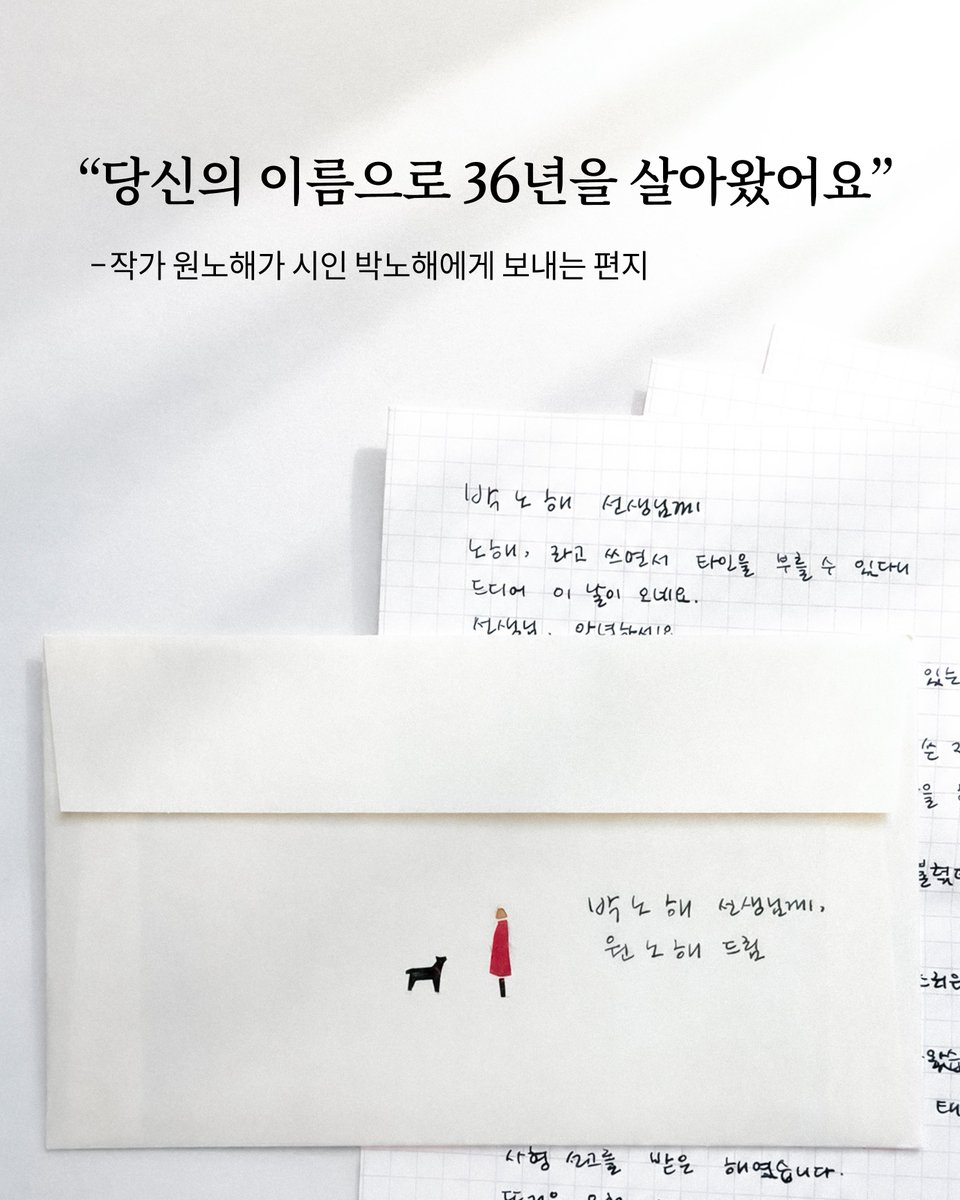 “당신의 이름으로 36년을 살아왔어요”
–작가 원노해가 시인 박노해에게 보내는 편지
박노해 선생님께
노해, 라고 쓰면서 타인을 부를 수 있다니
드디어 이 날이 오네요.
선생님, 안녕하세요
있는
쓴
을
태
박노해 선생님께,
원노해 드림
사형 선고를 받은 해였습니다.